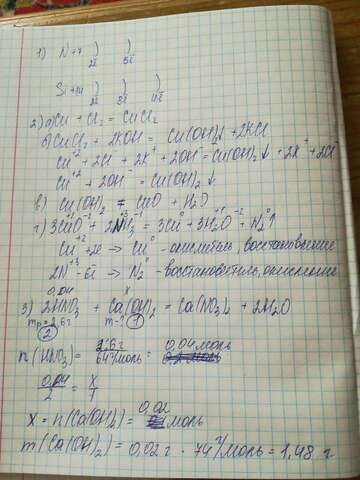 1) N +7 ) )
2ē 5ē
Si +14 ) ) )
2ē 8ē 4ē
2) a) Cu + Cl₂ = CuCl₂
б) CuCl₂ + 2KOH = Cu(OH)₂↓ + 2KCl
Cu⁺² + 2Cl⁻ + 2K⁺ + 2OH⁻ = Cu(OH)₂↓ + 2K⁺ + 2Cl⁻
Cu⁺² + 2OH⁻ = Cu(OH)₂↓
в) Cu(OH)₂ = CuO + H₂O
г) 3Cu⁺²O⁻² + 2N⁻³H₃⁺¹ = 3Cu⁰ + 3H₂⁺O⁻² + N₂⁰↑
Cu⁺² + 2ē → Cu⁰ - окислитель, восстановление
2N⁻³ - 6ē → N₂⁰ - восстановитель, окисление
0,04 x
3) 2HNO₃ + Ca(OH)₂ = Ca(NO₃)₂ + 2H₂O
2 m-? 1
n(HNO₃) = 2,6г / 64г/моль = 0,04 моль
0,04/2 = x/1
x = n(Ca(OH)₂) = 0,02 моль
m(Ca(OH)₂) = 0,02 г · 74 г/моль = 1,48 г